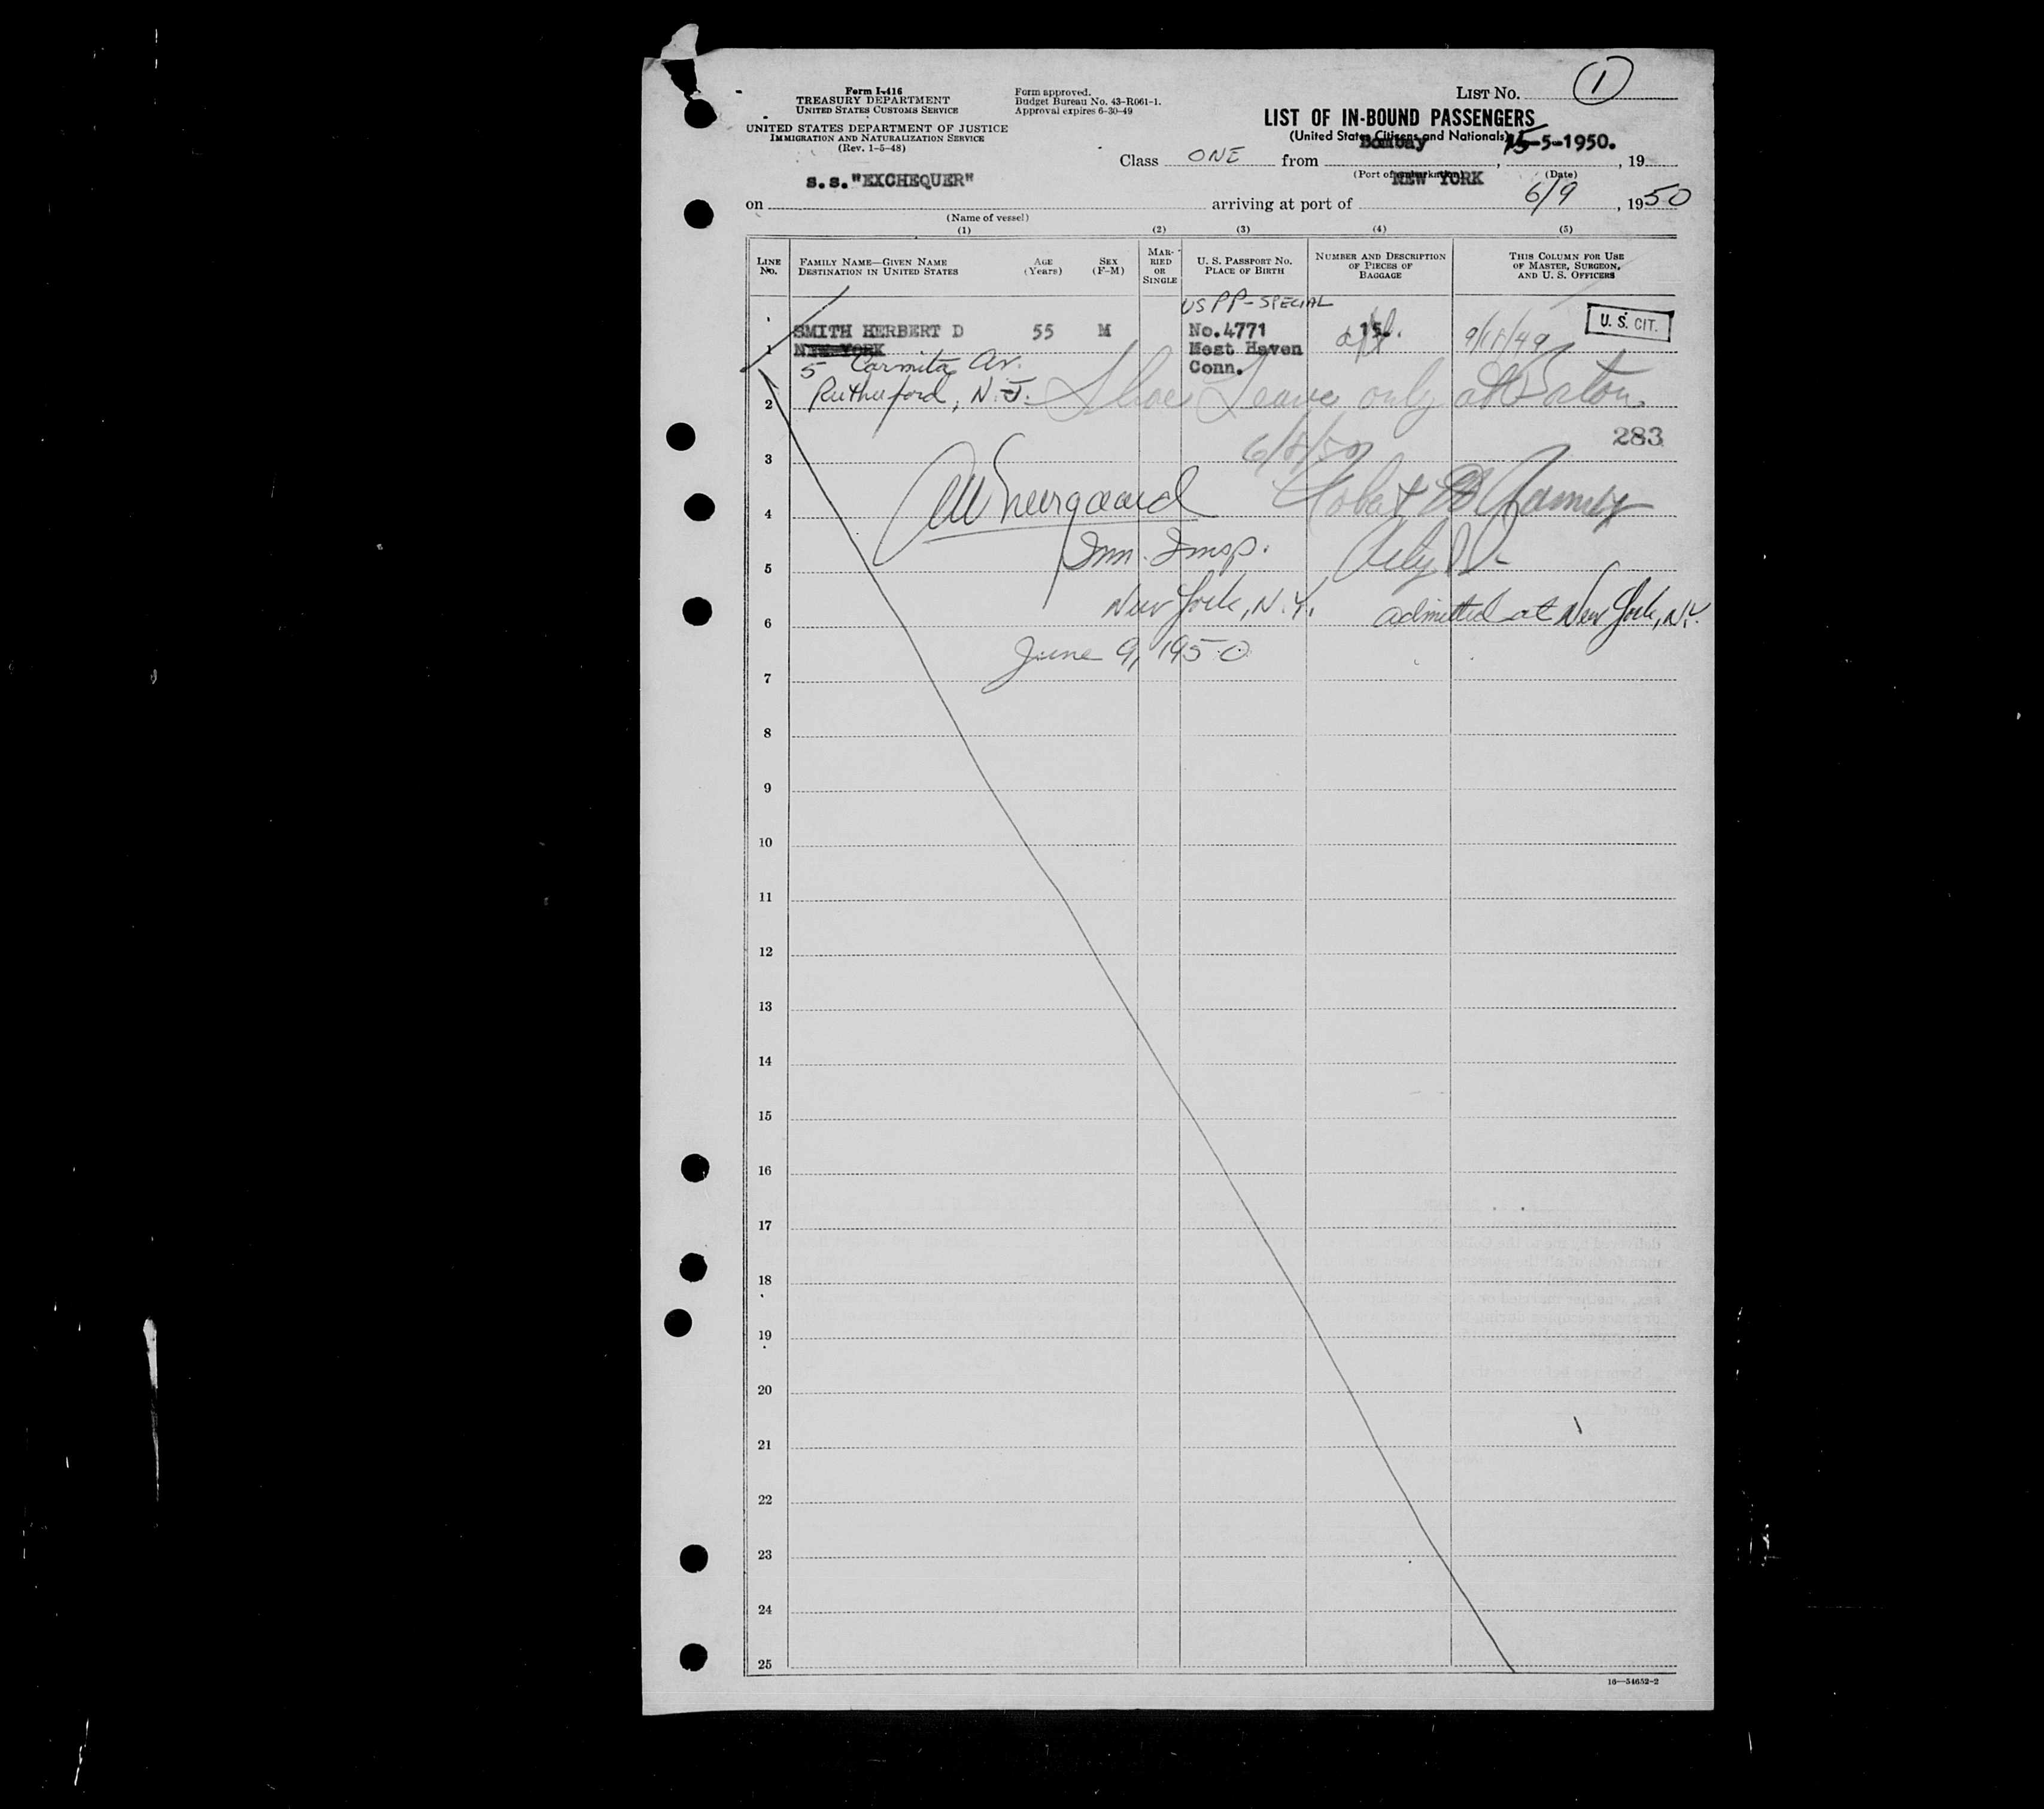 Form I-416
TREASURY DEPARTMENT
UNITED STATES CUSTOMS SERVICE
UNITED STATES DEPARTMENT OF JUSTICE
IMMIGRATION AND NATURALIZATION SERVICE
(Rev. 1-5-48)
Form approved.
Budget Bureau No. 43-R061-1.
Approval expires 6-30-49
LIST NO. 1
LIST OF IN-BOUND PASSENGERS
(United States Citizens and Nationals)
Class ONE from Bombay, 15-5-1950. , 19
(Port of embarkation) (Date)
s.s."EXCHEQUER" NEW YORK
on arriving at port of 6/9, 1950
(Name of vessel)
(1) (2) (3) (4) (5)
LINE NO.
FAMILY NAME—GIVEN NAME
DESTINATION IN UNITED STATES
AGE (Years)
SEX (F-M)
MARRIED OR SINGLE
U. S. PASSPORT NO.
PLACE OF BIRTH
NUMBER AND DESCRIPTION OF PIECES OF BAGGAGE
THIS COLUMN FOR USE OF MASTER, SURGEON, AND U. S. OFFICERS
US PP-SPECIAL
SMITH HERBERT D 55 M No.4771 15. U. S. CIT.
1 NEW YORK West Haven
5 Carmita Av. Conn.
Rutherford, N.J.
2 Shore Leave only at Boston
283
3 6/8/50
4
Imm. Insp.
5
New York, N.Y. admitted at New York, N.Y.
6
June 9, 1950
7
8
9
10
11
12
13
14
15
16
17
18
19
20
21
22
23
24
25
16—54652-2